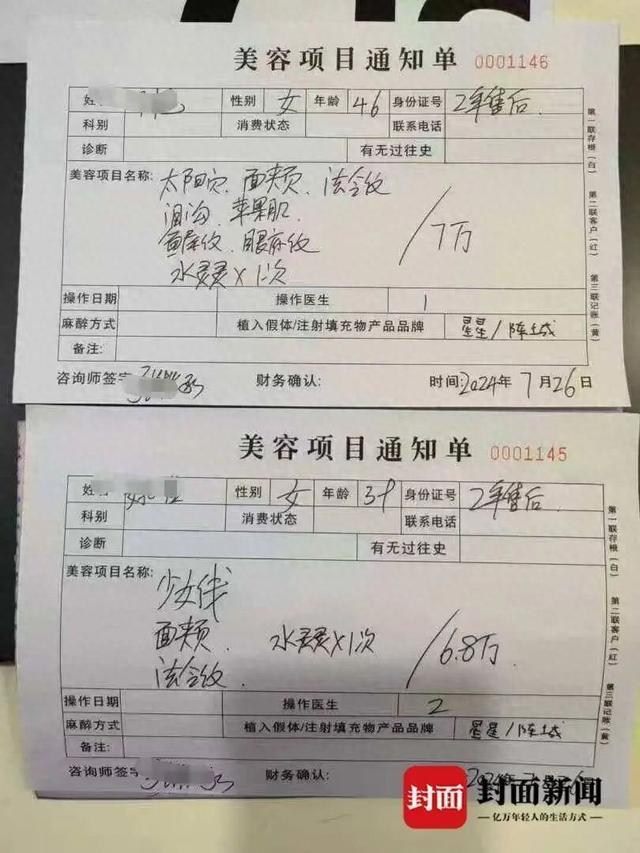 美容项目通知单 0001146
姓 性别 女 年龄 46 身份证号 2年售后
科别 消费状态 联系电话
诊断 有无过往史
美容项目名称: 太阳穴、面颊、法令纹
泪沟、苹果肌
鱼尾纹、眼底纹 /7万
水灵灵×1次
操作日期 操作医生 1
麻醉方式 植入假体/注射填充物产品品牌 星星/陈城
备注:
咨询师签字 财务确认: 时间:2024年7月26日
第一联存根(白)
第二联客户(红)
第三联记账(黄)
美容项目通知单 0001145
姓 性别 女 年龄 39 身份证号 2年售后
科别 消费状态 联系电话
诊断 有无过往史
美容项目名称:
少女线
面颊、 水灵灵×1次 /6.8万
法令纹
操作日期 操作医生 2
麻醉方式 植入假体/注射填充物产品品牌 星星/陈城
备注:
咨询师签字 财务确认: 2024年7月
第一联存根(白)
第二联客户(红)
第三联记账(黄)
封面 封面新闻
亿万年轻人的生活方式